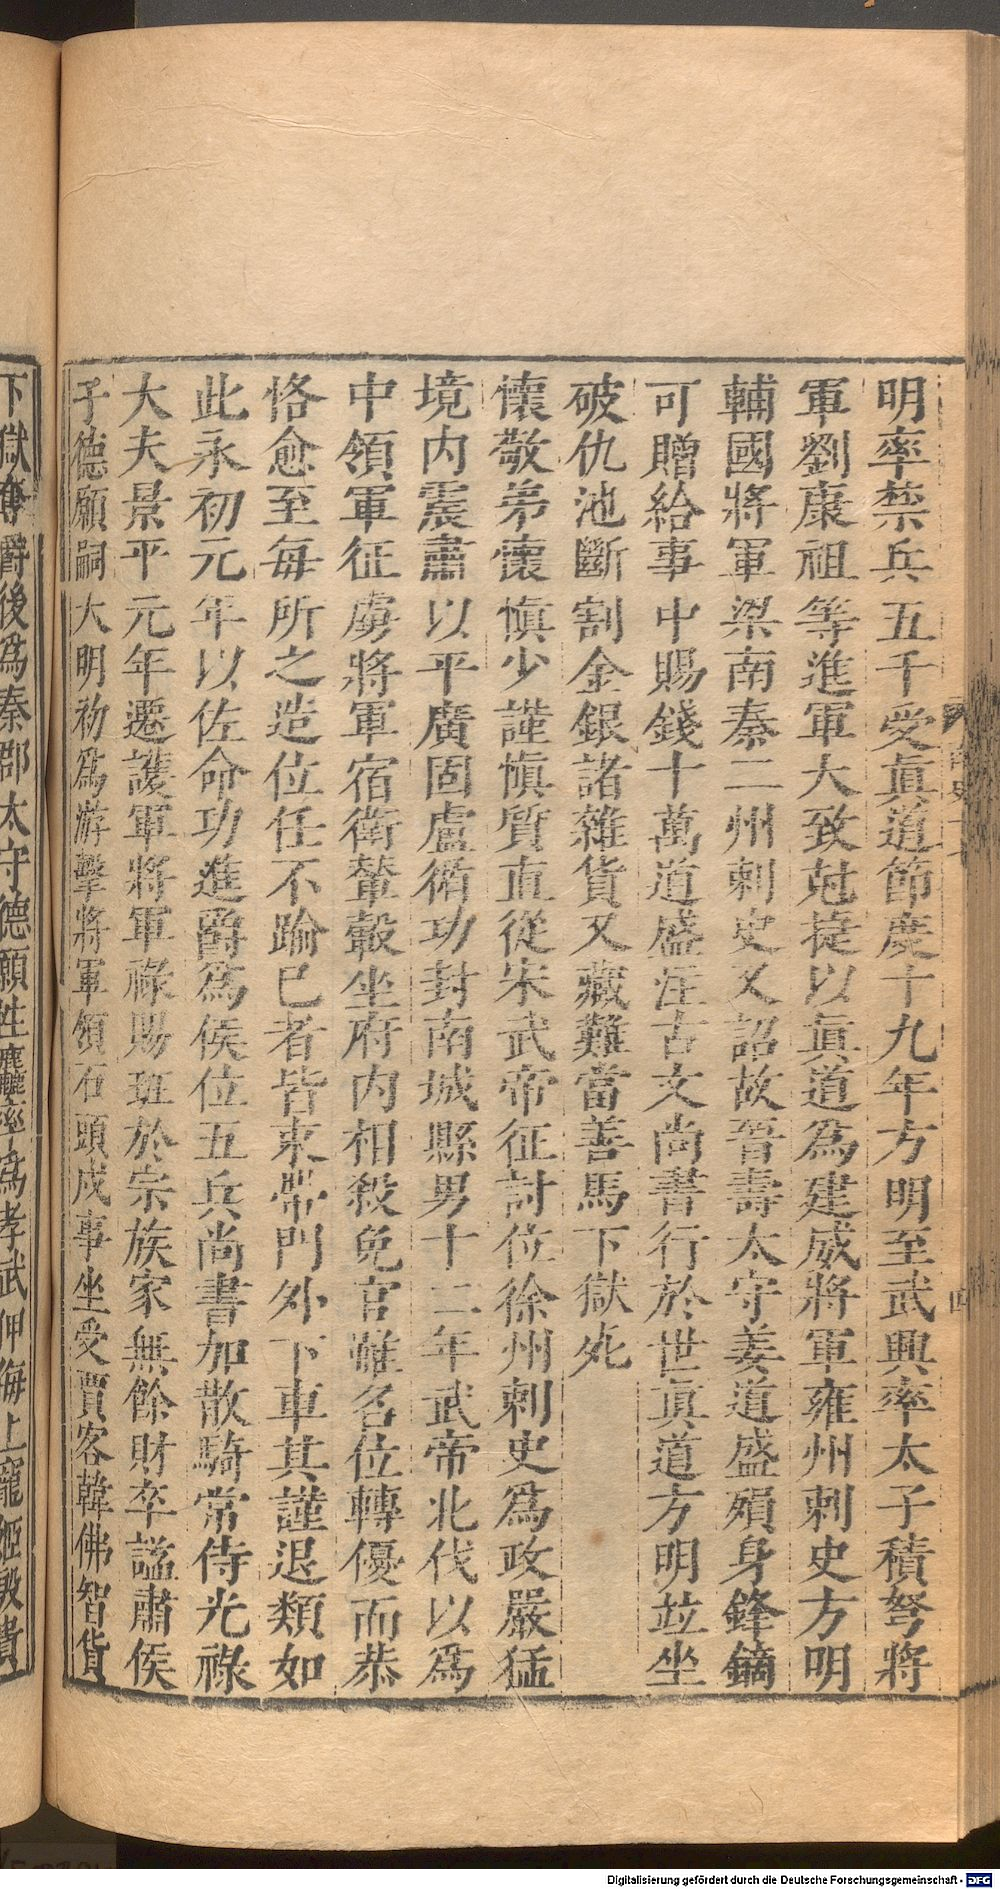 明率禁兵五千受眞道節度十九年方明至武興率太子積弩將
軍劉康祖等進軍大致尅捷以眞道爲建威將軍雍州刺史方明
輔國將軍梁南秦二州刺史又詔故晉壽太守姜道盛殞身鋒鏑
可贈給事中賜錢十萬道盛注古文尚書行於世眞道方明竝坐
破仇池斷割金銀諸雜貨又藏難當善馬下獄死
懷敬弟懷愼少謹愼質直從宋武帝征討位徐州刺史爲政嚴猛
境内震肅以平廣固盧循功封南城縣男十二年武帝北伐以爲
中領軍征虜將軍宿衛輦轂坐府内相殺免官雖名位轉優而恭
恪愈至每所之造位任不踰已者皆束帶門外下車其謹退類如
此永初元年以佐命功進爵爲侯位五兵尚書加散騎常侍光祿
大夫景平元年遷護軍將軍祿賜班於宗族家無餘財卒謚肅侯
子德願嗣大明初爲游擊將軍領石頭戍事坐受賈客韓佛智貨
下獄奪爵後爲秦郡太守德願性麤率爲孝武狎侮上寵姬殷貴
Digitalisierung gefördert durch die Deutsche Forschungsgemeinschaft - DFG